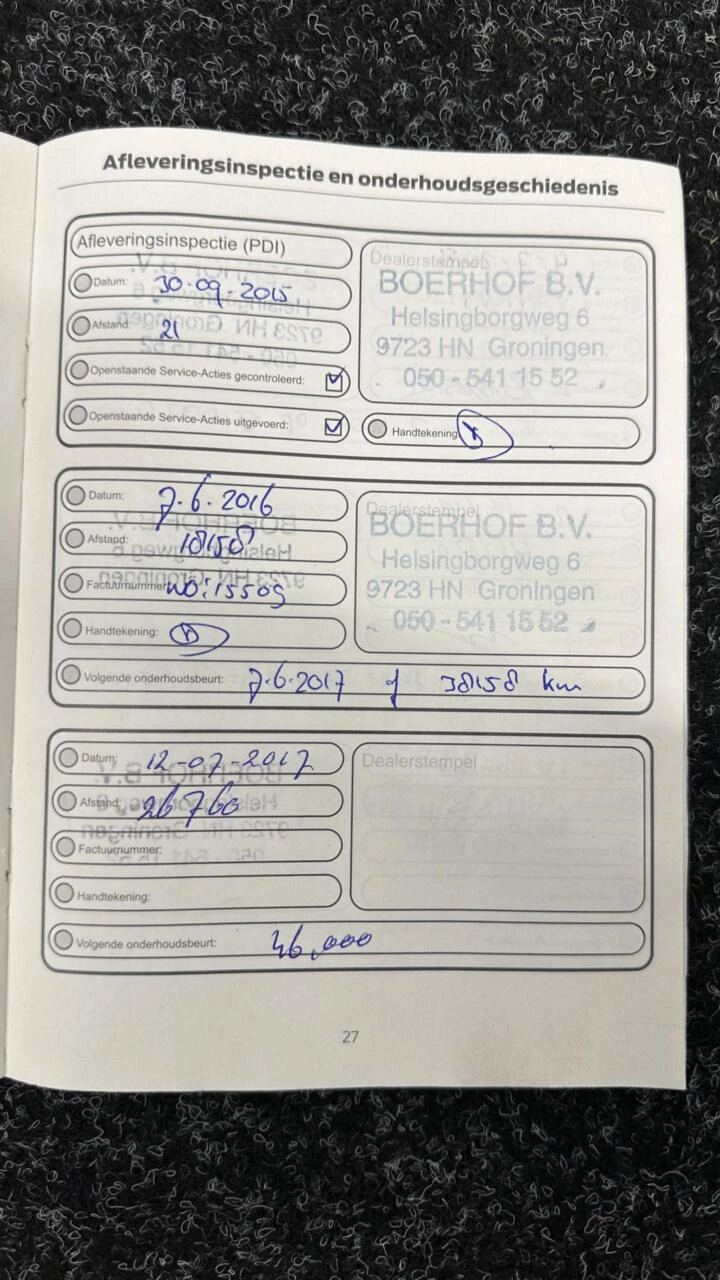 Afleveringsinspectie en onderhoudsgeschiedenis
Afleveringsinspectie (PDI)
Datum: 30-09-2015
Afstand: 21
Openstaande Service-Acties gecontroleerd:
Openstaande Service-Acties uitgevoerd:
Dealerstempel
BOERHOF B.V.
Helsingborgweg 6
9723 HN Groningen
050 - 541 15 52
Handtekening:
Datum: 7.6.2016
Afstand: 18158
Factuurnummer: WO:15509
Handtekening:
Dealerstempel
BOERHOF B.V.
Helsingborgweg 6
9723 HN Groningen
050 - 541 15 52
Volgende onderhoudsbeurt: 7.6.2017 of 38158 km
Datum: 12-07-2017
Afstand: 26760
Factuurnummer:
Handtekening:
Dealerstempel
Volgende onderhoudsbeurt: 46.000
27